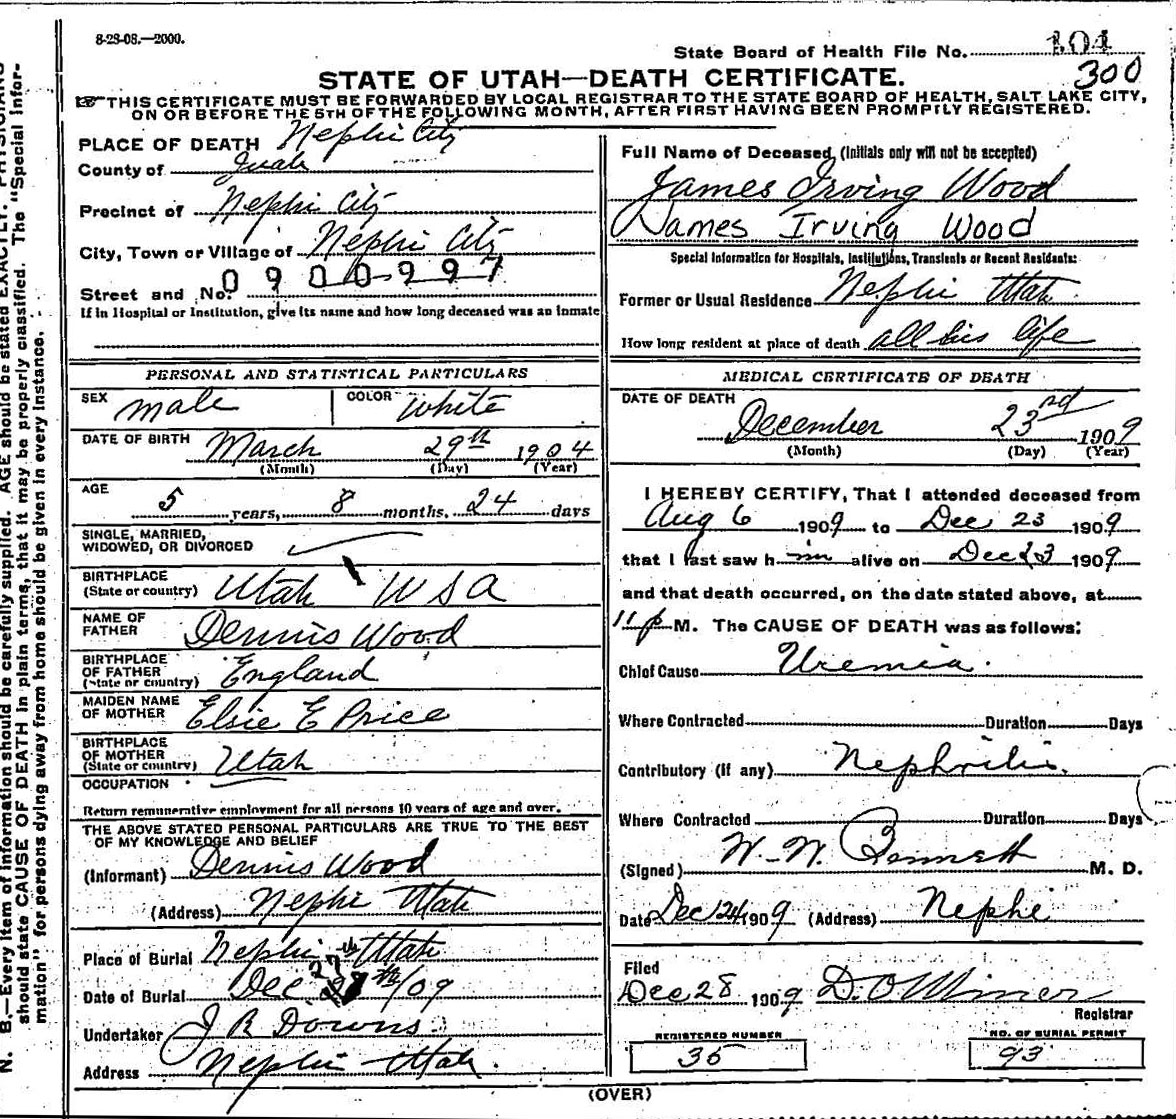 8-28-08.—2000.
State Board of Health File No. 104
300
STATE OF UTAH—DEATH CERTIFICATE.
THIS CERTIFICATE MUST BE FORWARDED BY LOCAL REGISTRAR TO THE STATE BOARD OF HEALTH, SALT LAKE CITY,
ON OR BEFORE THE 5TH OF THE FOLLOWING MONTH, AFTER FIRST HAVING BEEN PROMPTLY REGISTERED.
PLACE OF DEATH Nephi City
County of Juab
Precinct of Nephi City
City, Town or Village of Nephi City
Street and No. 0900997
If in Hospital or Institution, give its name and how long deceased was an inmate
PERSONAL AND STATISTICAL PARTICULARS
SEX male COLOR white
DATE OF BIRTH March 29th 1904
(Month) (Day) (Year)
AGE 5 years, 8 months, 24 days
SINGLE, MARRIED,
WIDOWED, OR DIVORCED
BIRTHPLACE
(State or country) Utah USA
NAME OF
FATHER Dennis Wood
BIRTHPLACE
OF FATHER
(State or country) England
MAIDEN NAME
OF MOTHER Elsie E Price
BIRTHPLACE
OF MOTHER
(State or country) Utah
OCCUPATION
Return remunerative employment for all persons 10 years of age and over.
THE ABOVE STATED PERSONAL PARTICULARS ARE TRUE TO THE BEST
OF MY KNOWLEDGE AND BELIEF
(Informant) Dennis Wood
(Address) Nephi Utah
Place of Burial Nephi Utah
Date of Burial Dec 27th /09
Undertaker J R Downs
Address Nephi Utah
Full Name of Deceased (Initials only will not be accepted)
James Irving Wood
James Irving Wood
Special Information for Hospitals, Institutions, Transients or Recent Residents:
Former or Usual Residence Nephi Utah
How long resident at place of death all his life
MEDICAL CERTIFICATE OF DEATH
DATE OF DEATH
December 23rd 1909
(Month) (Day) (Year)
I HEREBY CERTIFY, That I attended deceased from
Aug 6 1909 to Dec 23 1909
that I last saw him alive on Dec 23 1909
and that death occurred, on the date stated above, at
11 p M. The CAUSE OF DEATH was as follows:
Chief Cause Uremia.
Where Contracted Duration Days
Contributory (if any) Nephritis.
Where Contracted Duration Days
(Signed) W. W. Bennett M. D.
Date Dec 24 1909 (Address) Nephi
Filed
Dec 28 1909 D. O. Miner
Registrar
REGISTERED NUMBER
35
NO. OF BURIAL PERMIT
93
(OVER)
N. B.—Every item of information should be carefully supplied. AGE should be stated EXACTLY. PHYSICIANS
should state CAUSE OF DEATH in plain terms, that it may be properly classified. The "Special Infor-
mation" for persons dying away from home should be given in every instance.